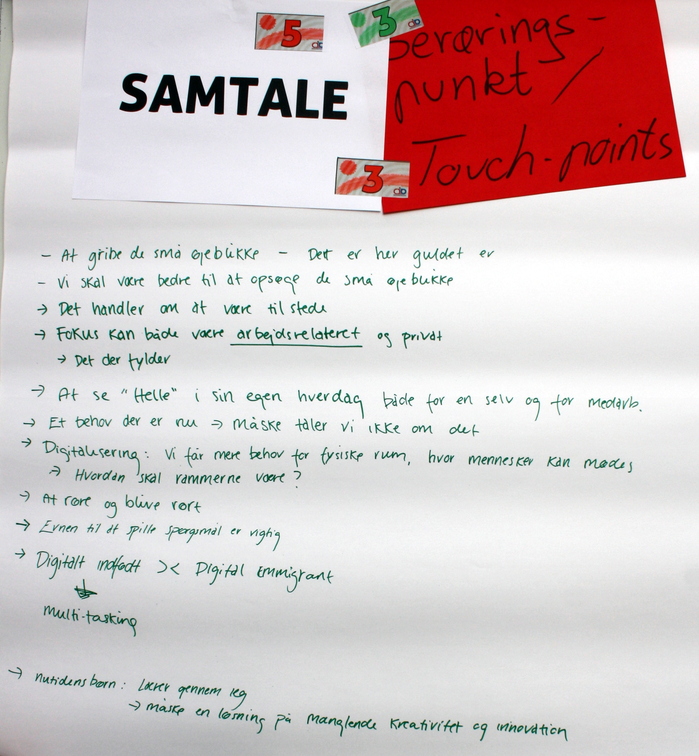 5
3
SAMTALE
Berørings-
punkt /
Touch-points
3
- At gribe de små øjeblikke - Det er her guldet er
- Vi skal være bedre til at opsøge de små øjeblikke
→ Det handler om at være til stede
→ Fokus kan både være arbejdsrelateret og privat
→ Det der fylder
→ At se "Helle" i sin egen hverdag både for en selv og for medarb.
→ Et behov der er nu → måske taler vi ikke om det
→ Digitalisering: Vi får mere behov for fysiske rum, hvor mennesker kan mødes
→ Hvordan skal rammerne være?
→ At røre og blive rørt
→ Evnen til at spille spørgsmål er vigtig
→ Digitalt indfødt >< Digital Emmigrant
multi-tasking
→ nutidensbørn: Lærer gennem leg
→ måske en løsning på manglende kreativitet og innovation